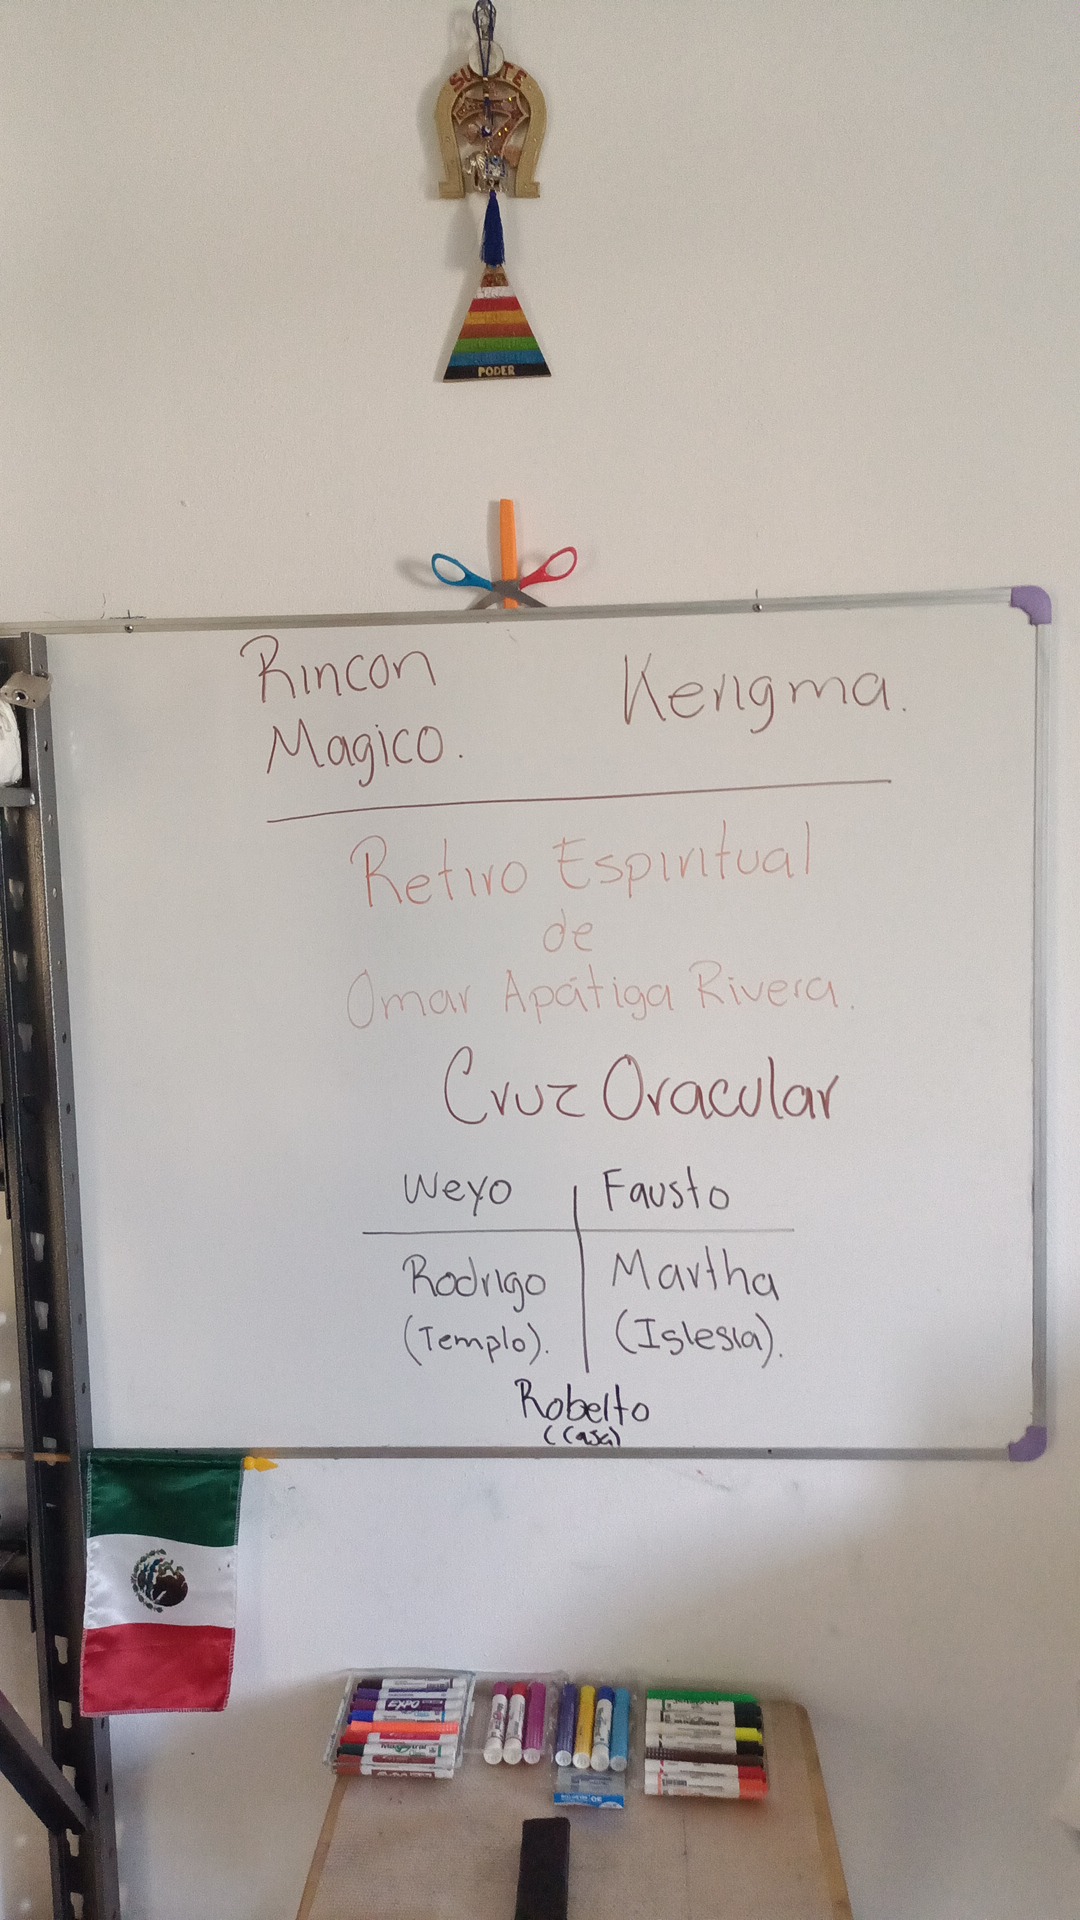 SUERTE
PODER
Rincon
Magico.
Kerigma.
Retiro Espiritual
de
Omar Apátiga Rivera.
Cruz Oracular
Weyo
Fausto
Rodrigo
Martha
(Templo).
(Iglesia).
Robelto
(Casa)
EXPO